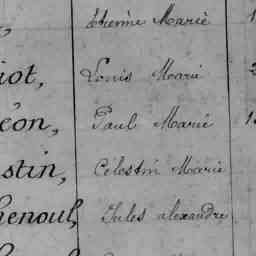 Etienne Marie 1
iot, Louis Marie 2
éon, Paul Marie 1
stin, Célestin Marie
henoul, Jules alexandre